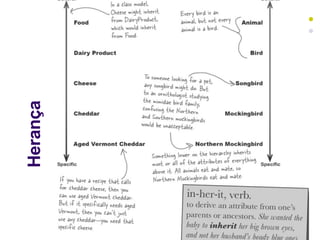 In a class model,
Cheese might inherit
from DairyProduct,
which would inherit
from Food.
Every bird is an
animal, but not every
animal is a bird.
Food
Animal
Dairy Product
Bird
To someone looking for a pet,
any songbird might do. But
to an ornithologist studying
the mimidae bird family,
confusing the Northern
and Southern mockingbirds
would be unacceptable.
Cheese
Songbird
Herança
Cheddar
Mockingbird
Aged Vermont Cheddar
Northern Mockingbird
Specific
Specific
Something lower on the hierarchy inherits
most or all of the attributes of everything
above it. All animals eat and mate, so
Northern Mockingbirds eat and mate.
If you have a recipe that calls
for cheddar cheese, then you
can use aged Vermont cheddar.
But if it specifically needs aged
Vermont, then you can't just
use any cheddar—you need that
specific cheese.
in-her-it, verb.
to derive an attribute from one's
parents or ancestors. She wanted the
baby to inherit her big brown eyes,
and not her husband's beady blue ones.